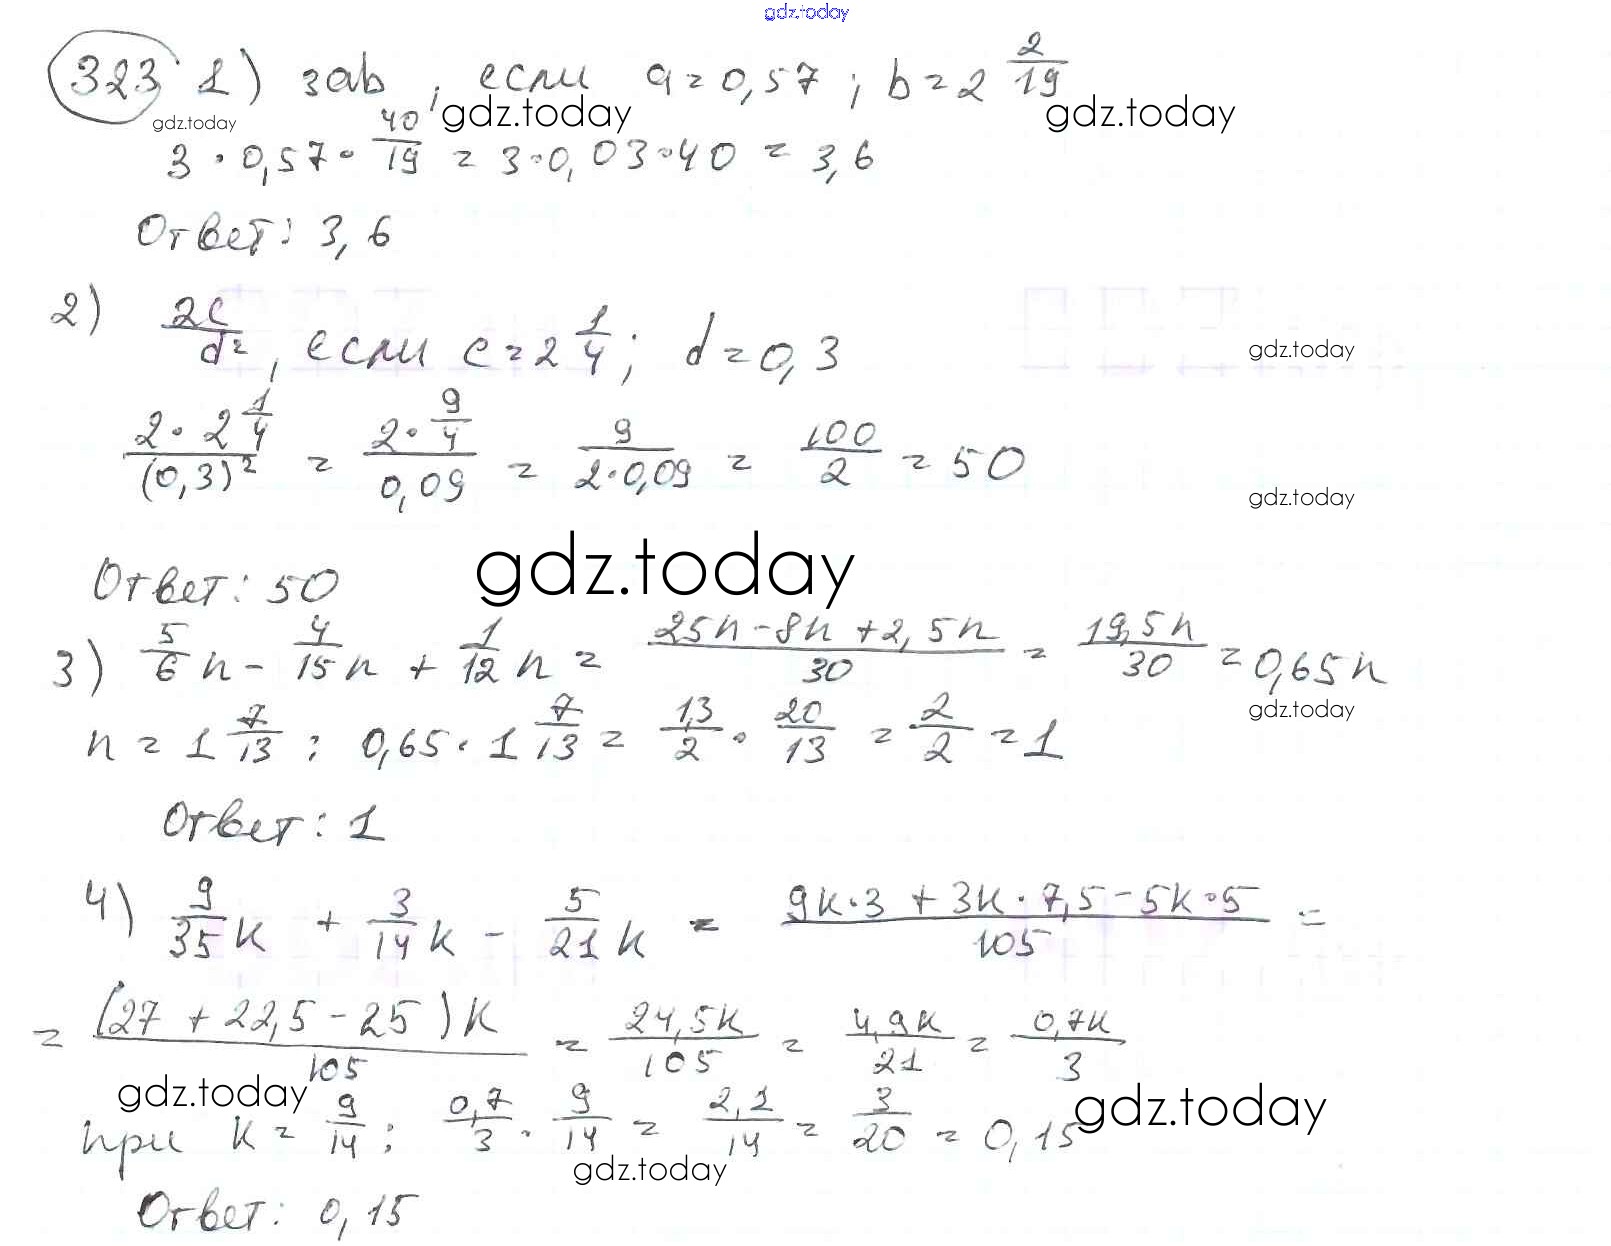 gdz.today
323 1) 3ab, если a = 0,57; b = 2 2/19
gdz.today gdz.today gdz.today
3 · 0,57 · 40/19 = 3·0,03·40 = 3,6
Ответ: 3,6
2) 2c/d², если c = 2 1/4; d = 0,3
gdz.today
(2 · 2 1/4)/(0,3)² = (2 · 9/4)/0,09 = 9/(2·0,09) = 100/2 = 50
gdz.today
gdz.today
Ответ: 50
3) 5/6 n - 4/15 n + 1/12 n = (25n - 8n + 2,5n)/30 = 19,5n/30 = 0,65n
gdz.today
n = 1 7/13 ; 0,65 · 1 7/13 = 1,3/2 · 20/13 = 2/2 = 1
Ответ: 1
4) 9/35 k + 3/14 k - 5/21 k = (9k·3 + 3k·7,5 - 5k·5)/105 =
= (27 + 22,5 - 25)k/105 = 24,5k/105 = 4,9k/21 = 0,7k/3
gdz.today gdz.today
при k = 9/14 ; 0,7/3 · 9/14 = 2,1/14 = 3/20 = 0,15
gdz.today
Ответ: 0,15